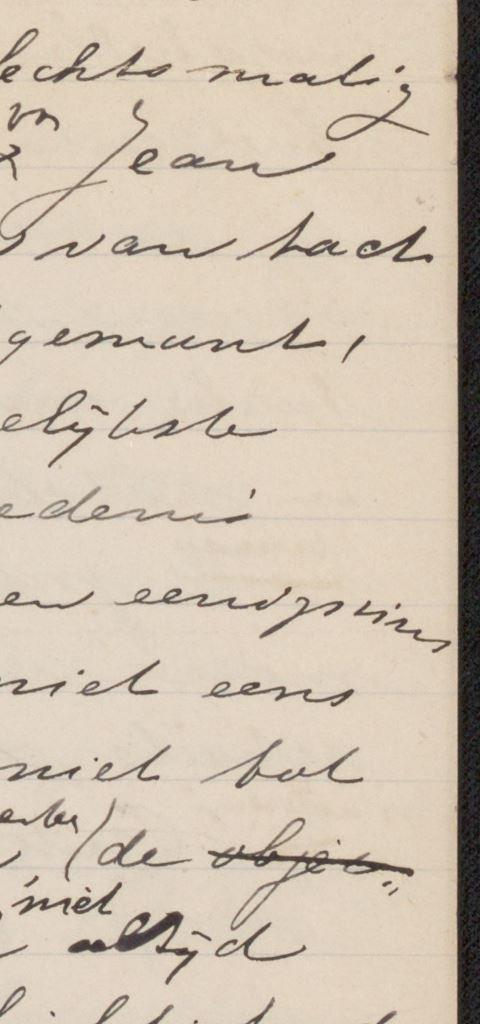 lechtsmalig
Jean
van tact
gemunt,
elijkste
edenis
en eenigszins
niet eens
niet tot
(de objec
niet
altijd